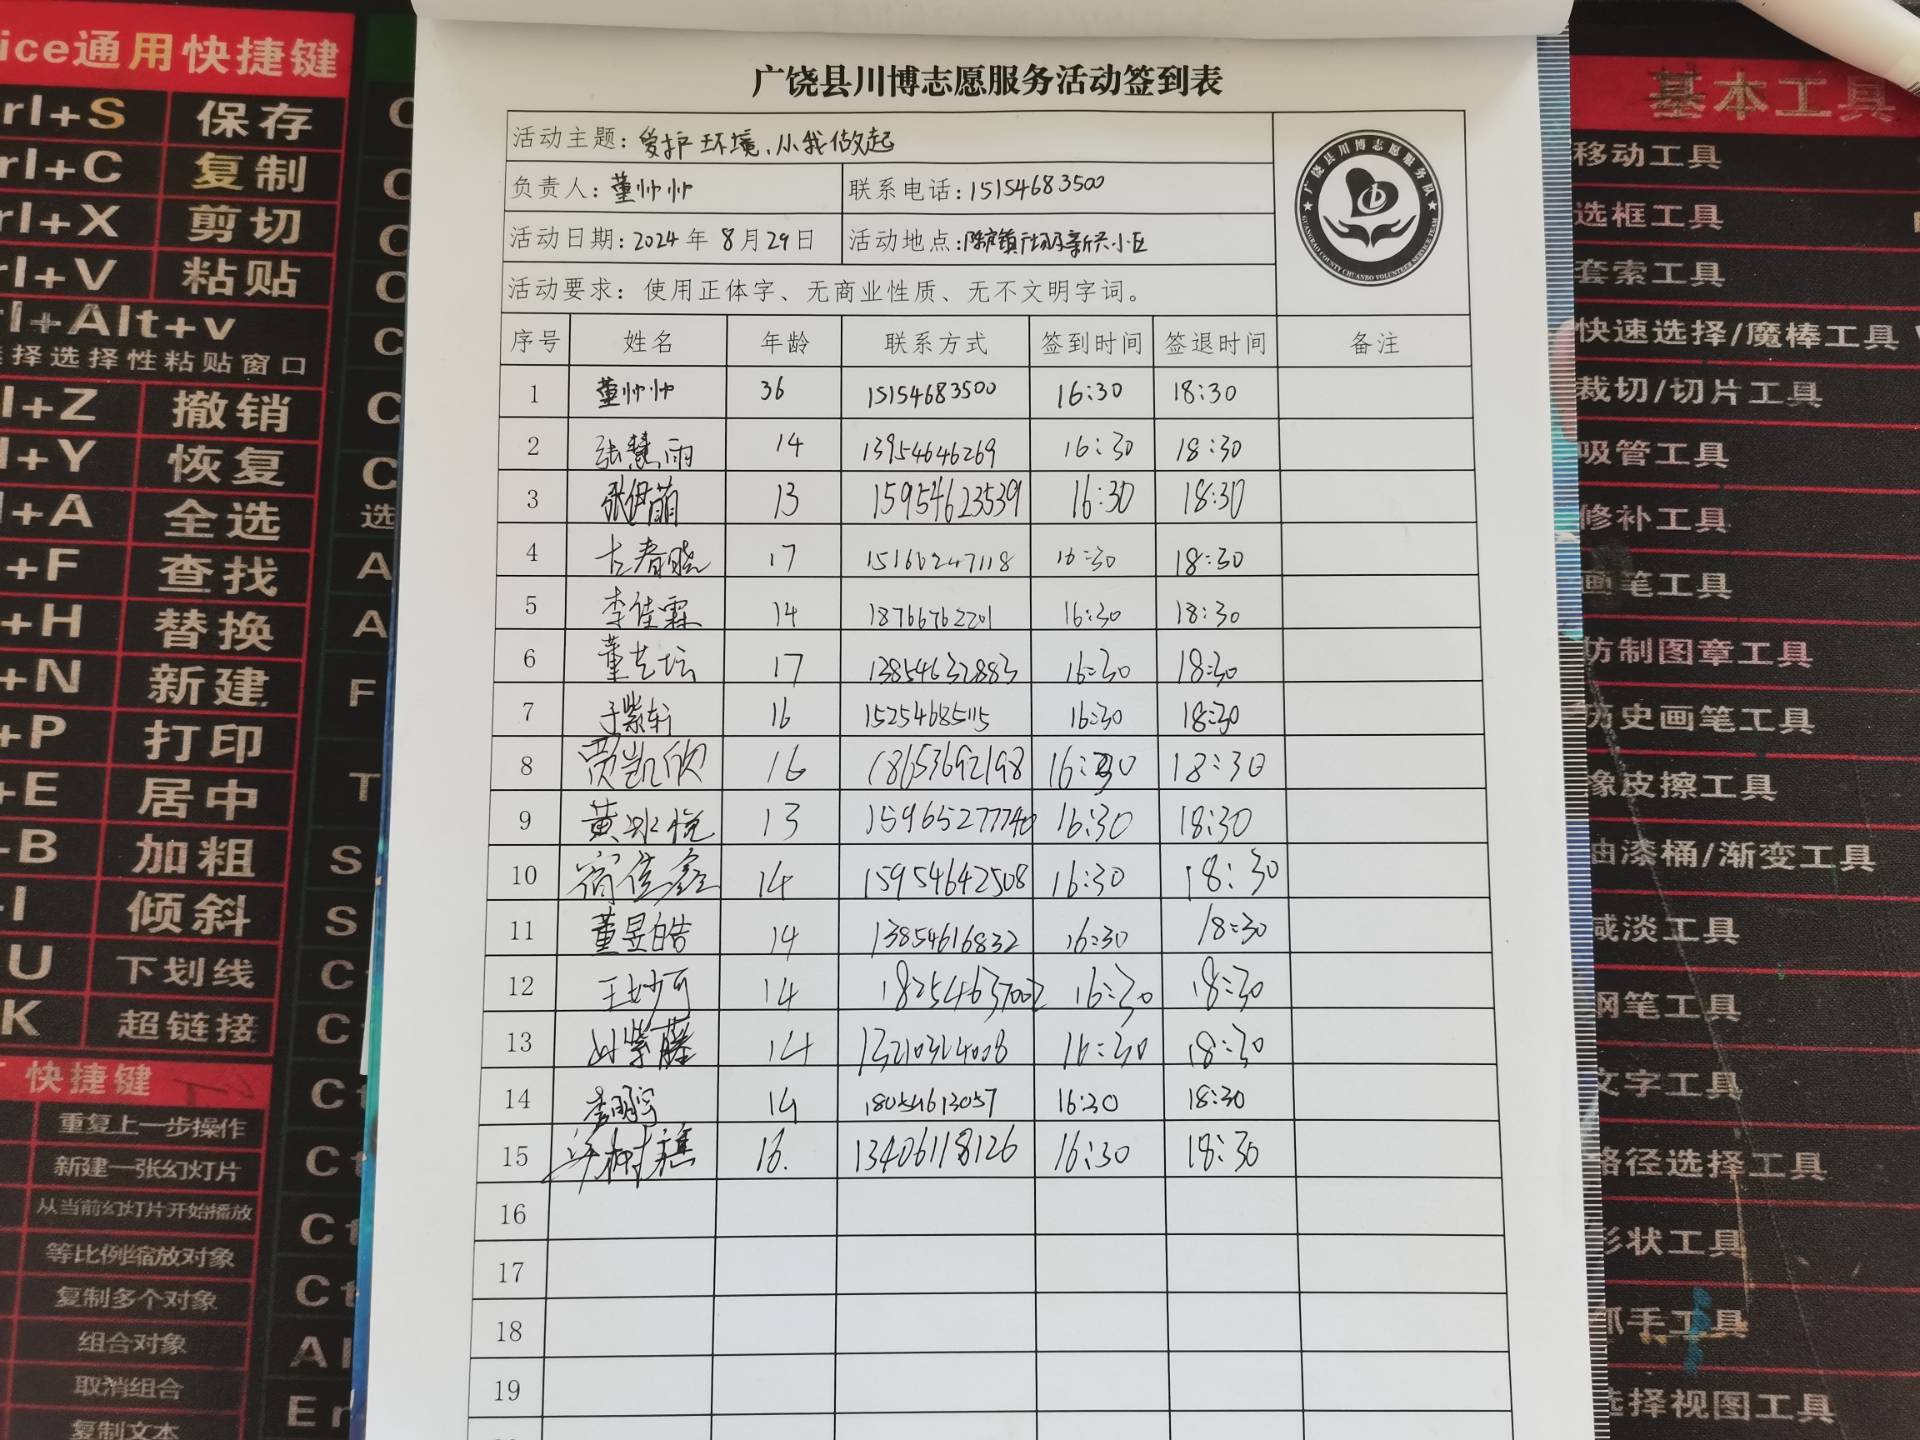 广饶县川博志愿服务活动签到表
活动主题：爱护环境、从我做起
负责人：董帅帅 联系电话：15154683500
活动日期：2024年8月29日 活动地点：新兴小区
活动要求：使用正体字、无商业性质、无不文明字词。
广饶县川博志愿服务队
GUANGRAO COUNTY CHUANBO VOLUNTEER SERVICE TEAM
序号 姓名 年龄 联系方式 签到时间 签退时间 备注
1 董帅帅 36 15154683500 16:30 18:30
2 张慧雨 14 13954646269 16:30 18:30
3 张伊萌 13 15954623539 16:30 18:30
4 春晓 17 15160247118 16:30 18:30
5 李佳霖 14 18766762201 16:30 18:30
6 董艺坛 17 13854632883 16:30 18:30
7 于紫轩 16 15254685115 16:30 18:30
8 贾凯欣 16 18653692198 16:30 18:30
9 黄冰悦 13 15965277740 16:30 18:30
10 宿佳鑫 14 15954642508 16:30 18:30
11 董昱皓 14 13854616832 16:30 18:30
12 王妙可 14 18254637002 16:30 18:30
13 紫藤 14 13210324008 16:30 18:30
14 李明宇 14 18054613057 16:30 18:30
15 许树 16. 13406118126 16:30 18:30
16
17
18
19
ice通用快捷键
rl+S 保存
rl+C 复制
rl+X 剪切
rl+V 粘贴
l+Alt+v
择选择性粘贴窗口
l+Z 撤销
l+Y 恢复
+A 全选
+F 查找
+H 替换
+N 新建
+P 打印
+E 居中
-B 加粗
-I 倾斜
U 下划线
K 超链接
快捷键
重复上一步操作
新建一张幻灯片
从当前幻灯片开始播放
等比例缩放对象
复制多个对象
组合对象
取消组合
复制文本
基本工具
移动工具
选框工具
套索工具
快速选择/魔棒工具
裁切/切片工具
吸管工具
修补工具
画笔工具
仿制图章工具
历史画笔工具
橡皮擦工具
油漆桶/渐变工具
减淡工具
钢笔工具
文字工具
路径选择工具
形状工具
抓手工具
选择视图工具